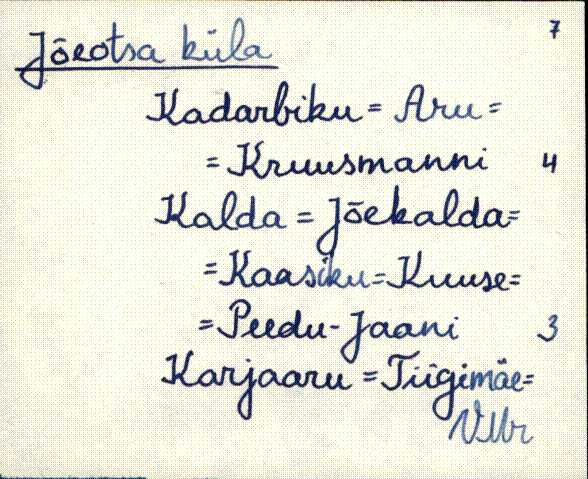 Jõeotsa küla 7
Kadarbiku = Aru =
= Kruusmanni 4
Kalda = Jõekalda=
=Kaasiku=Kuuse=
=Peedu-Jaani 3
Karjaaru =Tiigimäe=